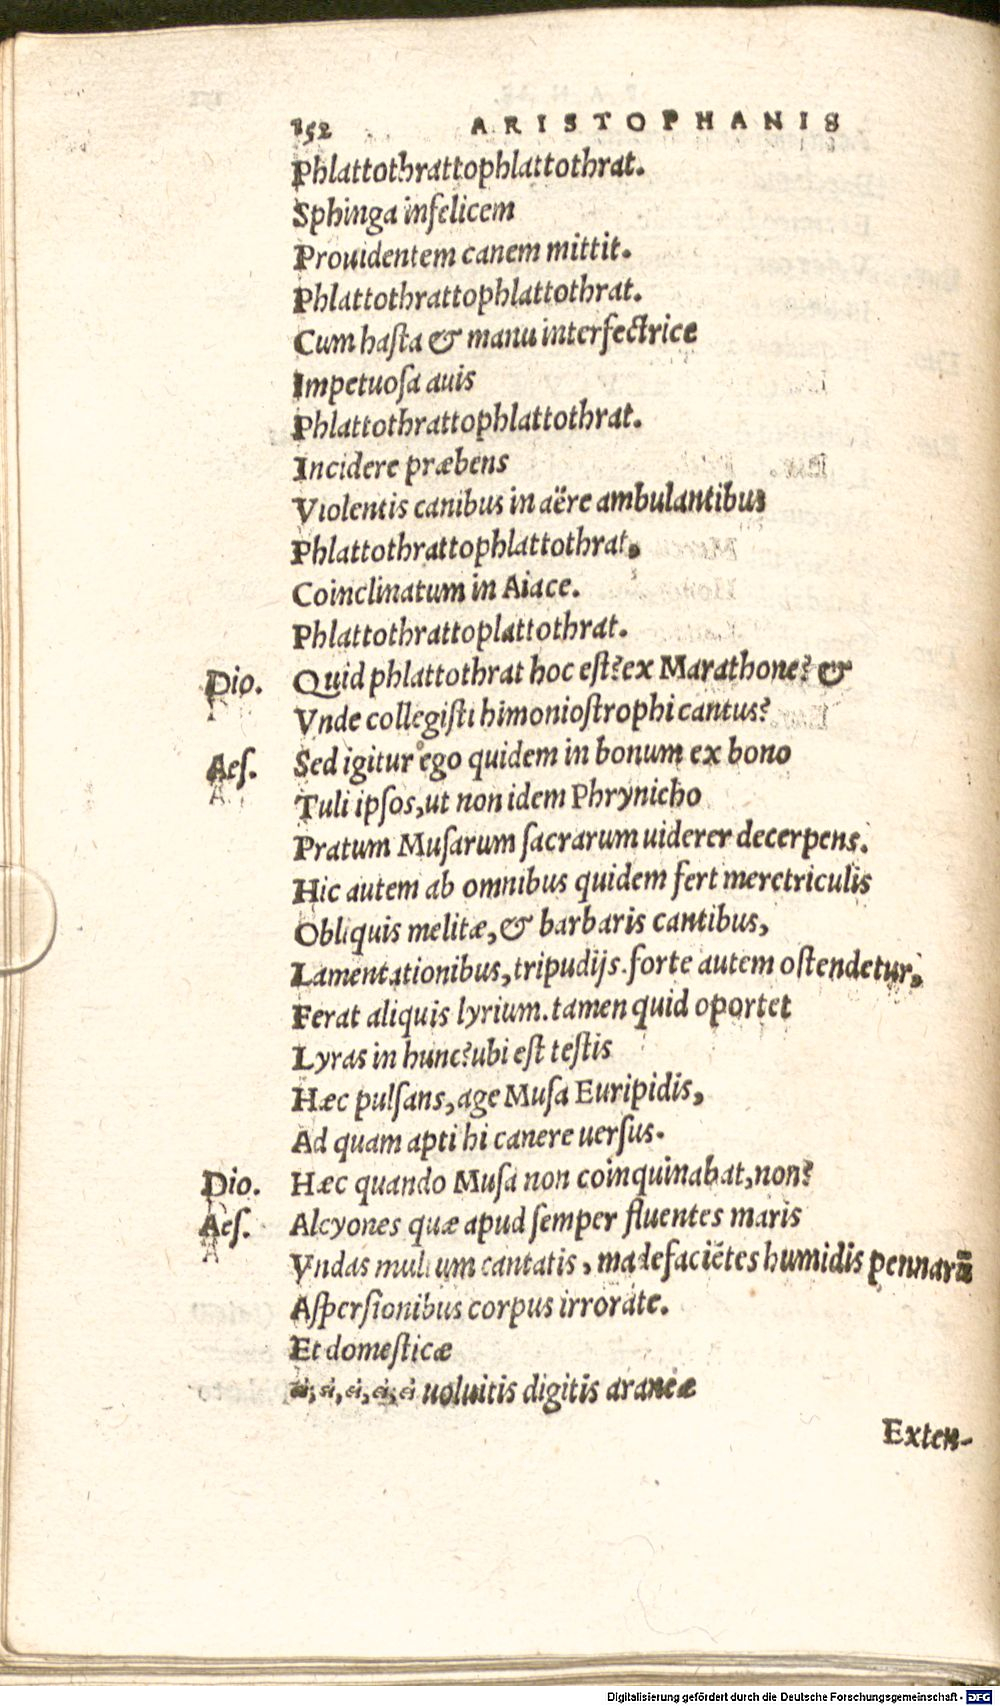 152 ARISTOPHANIS
Phlattothrattophlattothrat.
Sphinga infelicem
Prouidentem canem mittit.
Phlattothrattophlattothrat.
Cum haſta & manu interfectrice
Impetuoſa auis
Phlattothrattophlattothrat.
Incidere præbens
Violentis canibus in aëre ambulantibus
Phlattothrattophlattothrat,
Coinclinatum in Aiace.
Phlattothrattoplattothrat.
Dio. Quid phlattothrat hoc eſt? ex Marathone? &
Vnde collegiſti himonioſtrophi cantus?
Aeſ. Sed igitur ego quidem in bonum ex bono
Tuli ipſos, ut non idem Phrynicho
Pratum Muſarum ſacrarum uiderer decerpens.
Hic autem ab omnibus quidem fert meretriculis
Obliquis melitæ, & barbaris cantibus,
Lamentationibus, tripudijs. forte autem oſtendetur,
Ferat aliquis lyrium. tamen quid oportet
Lyras in hunc? ubi eſt teſtis
Hæc pulſans, age Muſa Euripidis,
Ad quam apti hi canere uerſus.
Dio. Hæc quando Muſa non coinquinabat, non?
Aeſ. Alcyones quæ apud ſemper fluentes maris
Vndas multum cantatis, madefaciẽtes humidis pennarũ
Aſperſionibus corpus irrorate.
Et domeſticæ
ei, ei, ei, ei, ei uoluitis digitis araneæ
Exten-
Digitalisierung gefördert durch die Deutsche Forschungsgemeinschaft - DFG